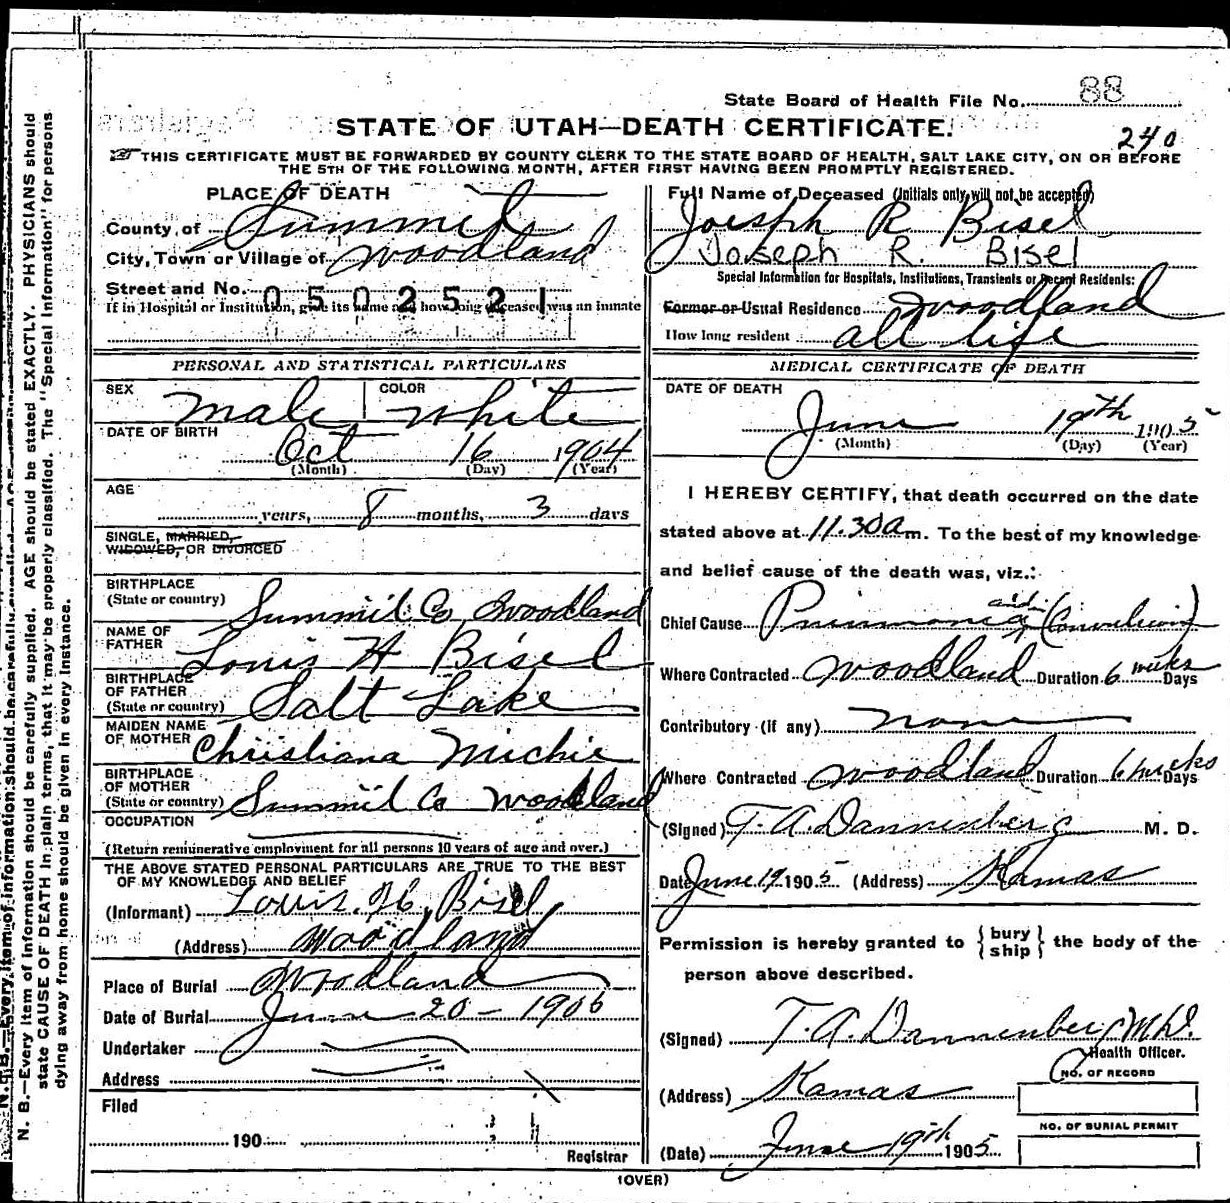 State Board of Health File No. 88
STATE OF UTAH—DEATH CERTIFICATE.
240
THIS CERTIFICATE MUST BE FORWARDED BY COUNTY CLERK TO THE STATE BOARD OF HEALTH, SALT LAKE CITY, ON OR BEFORE
THE 5TH OF THE FOLLOWING MONTH, AFTER FIRST HAVING BEEN PROMPTLY REGISTERED.
PLACE OF DEATH
County of Summit
City, Town or Village of Woodland
Street and No.
0502521
If in Hospital or Institution, give its name and how long deceased was an inmate
PERSONAL AND STATISTICAL PARTICULARS
SEX Male COLOR White
DATE OF BIRTH
Oct 16 1904
(Month) (Day) (Year)
AGE
years, 8 months, 3 days
SINGLE, MARRIED,
WIDOWED, OR DIVORCED
BIRTHPLACE
(State or country) Summit Co Woodland
NAME OF
FATHER Louis H Bisel
BIRTHPLACE
OF FATHER
(State or country) Salt Lake
MAIDEN NAME
OF MOTHER Christiana Michie
BIRTHPLACE
OF MOTHER
(State or country) Summit Co Woodland
OCCUPATION
(Return remunerative employment for all persons 10 years of age and over.)
THE ABOVE STATED PERSONAL PARTICULARS ARE TRUE TO THE BEST
OF MY KNOWLEDGE AND BELIEF
(Informant) Louis H. Bisel
(Address) Woodland
Place of Burial Woodland
Date of Burial June 20 - 1905
Undertaker
Address
Filed
190
Registrar
Full Name of Deceased (Initials only will not be accepted)
Joesph R Bisel
Joseph R. Bisel
Special Information for Hospitals, Institutions, Transients or Recent Residents:
Former or Usual Residence Woodland
How long resident all life
MEDICAL CERTIFICATE OF DEATH
DATE OF DEATH
June 19th 1905
(Month) (Day) (Year)
I HEREBY CERTIFY, that death occurred on the date
stated above at 11.30 a m. To the best of my knowledge
and belief cause of the death was, viz.:
Chief Cause Pneumonia and (Convulsions)
Where Contracted Woodland Duration 6 weeks Days
Contributory (if any) none
Where Contracted Woodland Duration 6 weeks Days
(Signed) T. A. Dannenberg M. D.
Date June 19 1905 (Address) Kamas
Permission is hereby granted to { bury
ship } the body of the
person above described.
(Signed) T. A. Dannenberg M.D.
Health Officer.
NO. OF RECORD
(Address) Kamas
NO. OF BURIAL PERMIT
(Date) June 19th 1905
(OVER)
N. B.—Every item of information should be carefully supplied. AGE should be stated EXACTLY. PHYSICIANS should
state CAUSE OF DEATH in plain terms, that it may be properly classified. The "Special Information" for persons
dying away from home should be given in every instance.